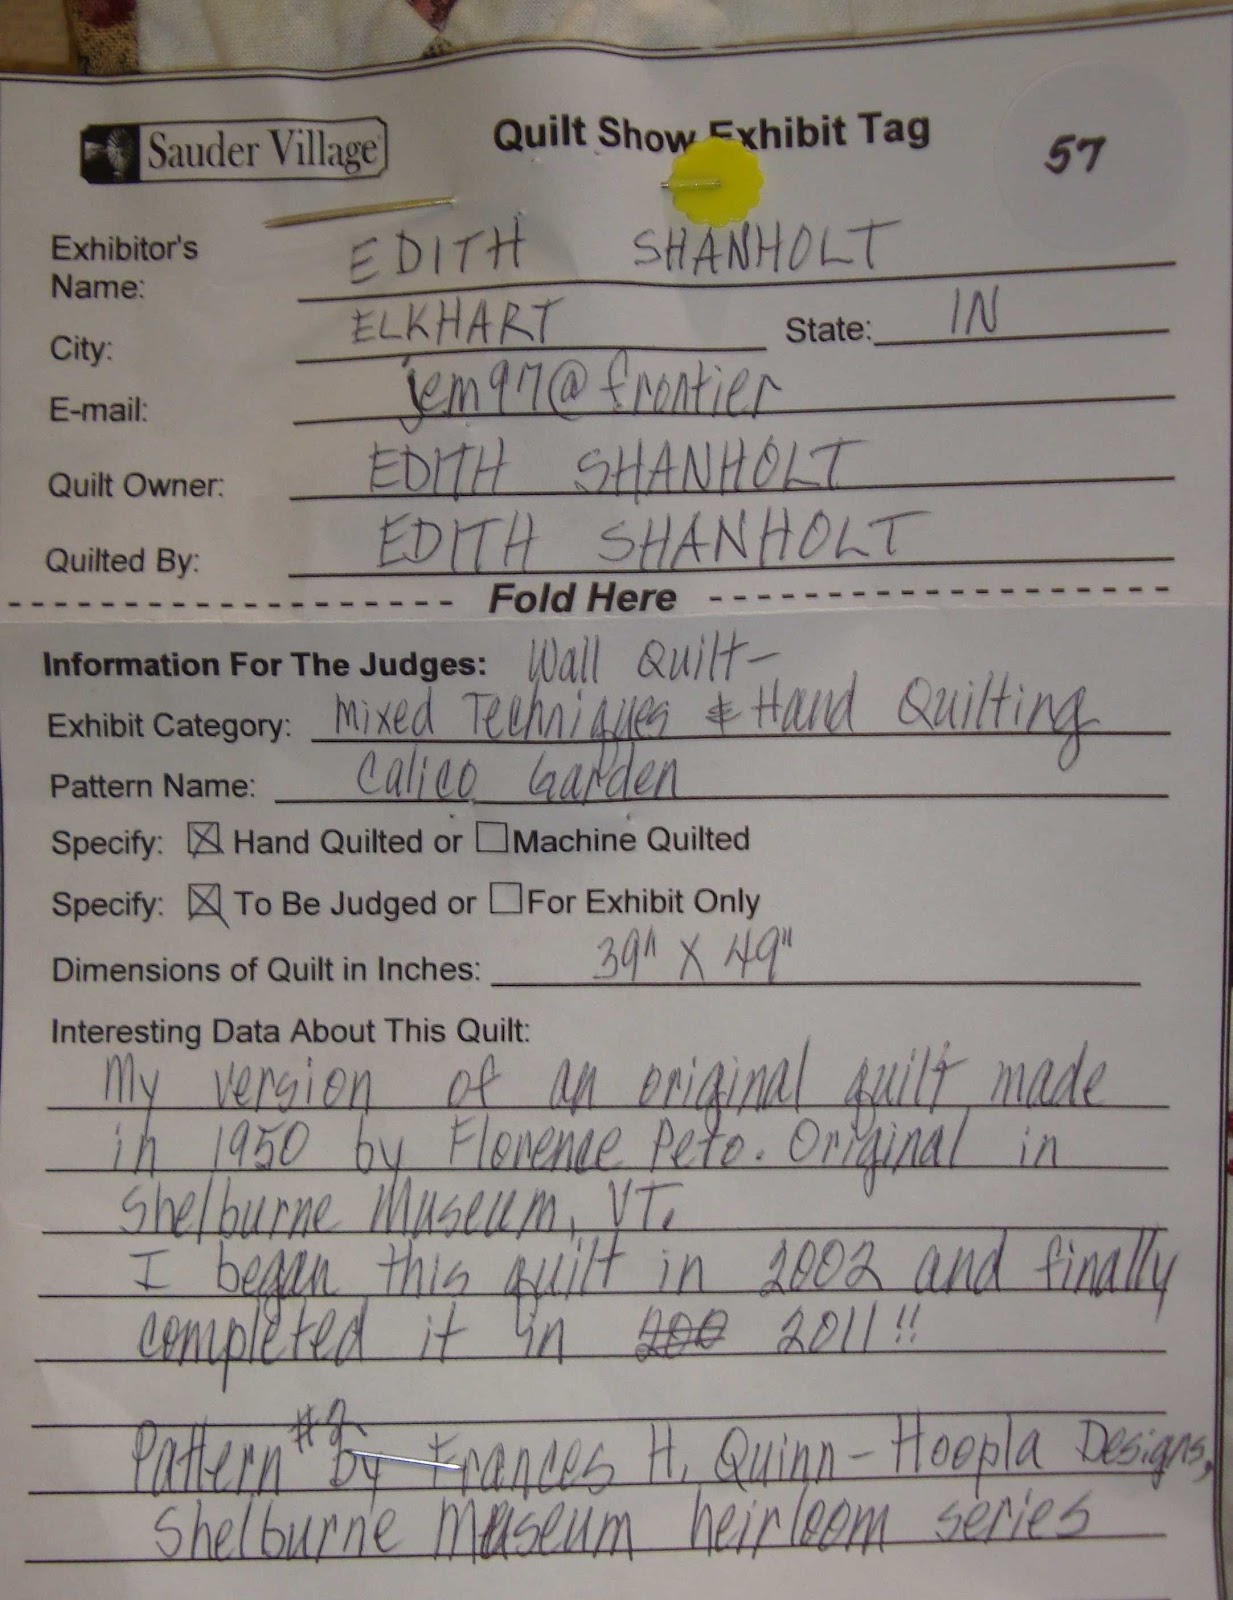 Sauder Village
Quilt Show Exhibit Tag
57
Exhibitor's Name: EDITH SHANHOLT
City: ELKHART State: IN
E-mail: jem97@frontier
Quilt Owner: EDITH SHANHOLT
Quilted By: EDITH SHANHOLT
Fold Here
Information For The Judges: Wall Quilt-
Exhibit Category: Mixed Techniques & Hand Quilting
Pattern Name: Calico Garden
Specify: ☒ Hand Quilted or ☐ Machine Quilted
Specify: ☒ To Be Judged or ☐ For Exhibit Only
Dimensions of Quilt in Inches: 39" X 49"
Interesting Data About This Quilt:
My version of an original quilt made
in 1950 by Florence Peto. Original in
Shelburne Museum, VT.
I began this quilt in 2002 and finally
completed it in 200 2011!!
Pattern #2 by Frances H. Quinn - Hoopla Designs,
Shelburne Museum heirloom series